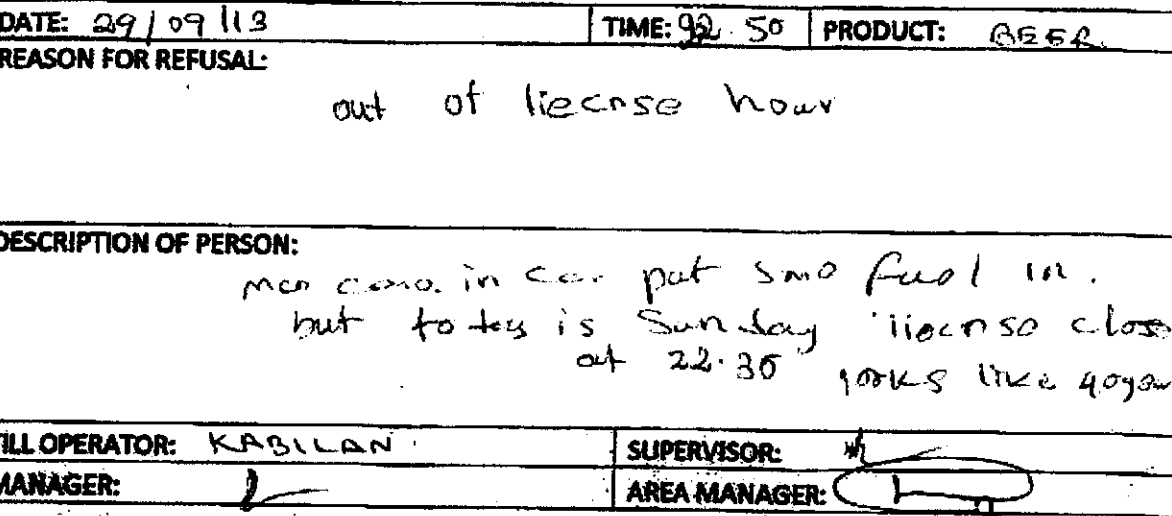 DATE: 29/09/13 TIME: 22.50 PRODUCT: BEER
REASON FOR REFUSAL:
out of liecnse hour
DESCRIPTION OF PERSON:
man in car put fuel in.
but is Sunday liecnse close
at 22.30 looks like 40year
TILL OPERATOR: KABILAN SUPERVISOR:
MANAGER: AREA MANAGER: